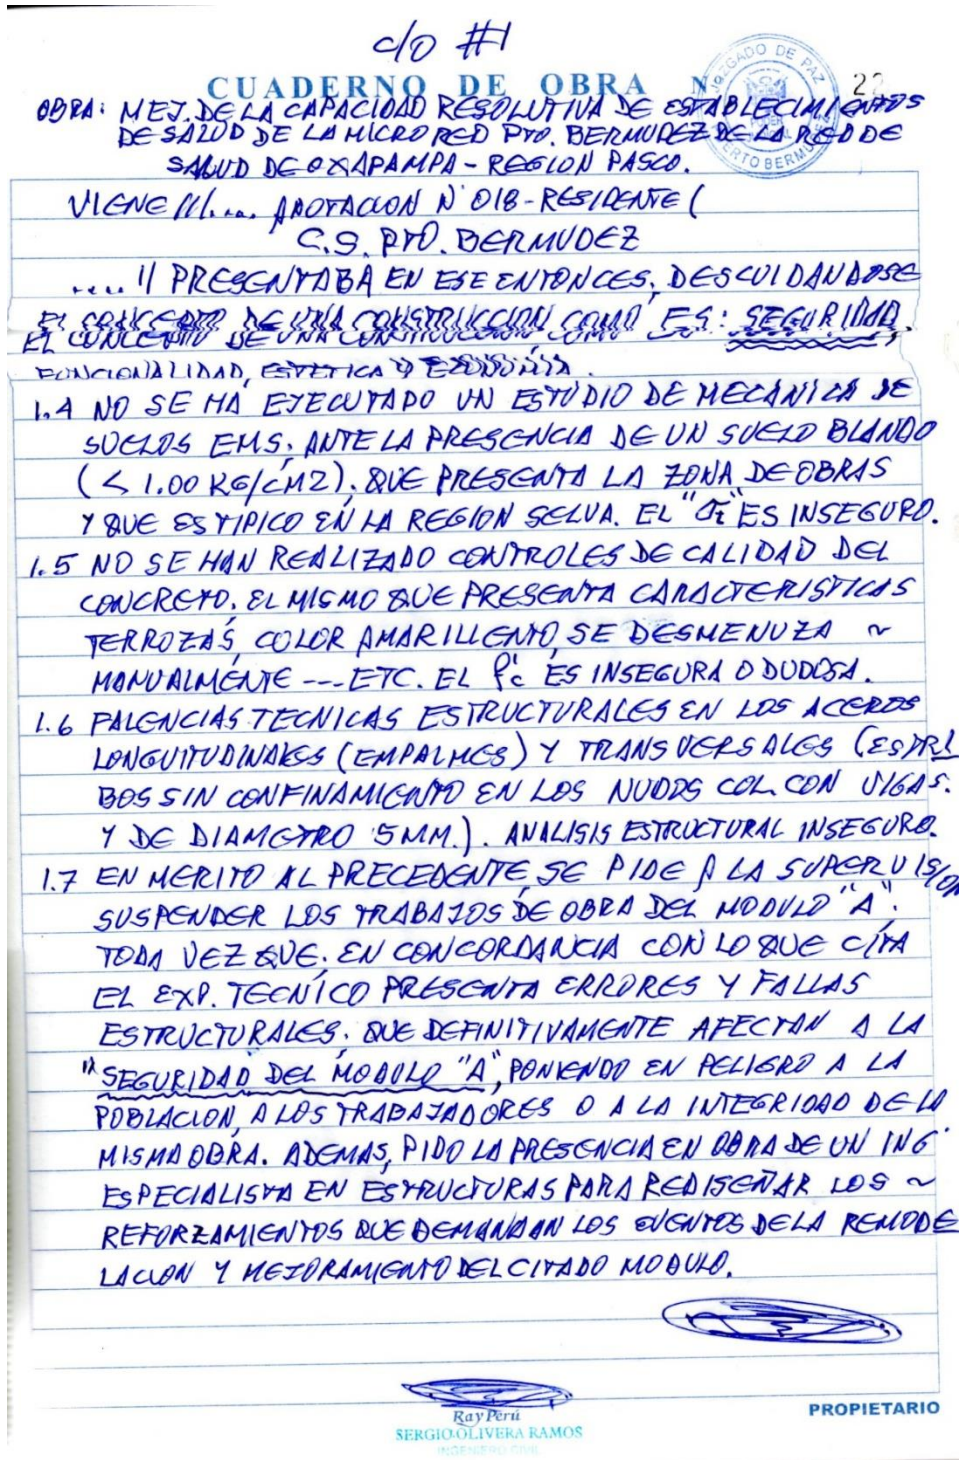 c/o #1
CUADERNO DE OBRA N
22
JUZGADO DE PAZ
PUERTO BERMUDEZ
OBRA: MEJ. DE LA CAPACIDAD RESOLUTIVA DE ESTABLECIMIENTOS
DE SALUD DE LA MICRO RED PTO. BERMUDEZ DE LA RED DE
SALUD DE OXAPAMPA - REGION PASCO.
VIENE ///.... ANOTACION N° 018 - RESIDENTE (
C.S. PTO. BERMUDEZ
.... // PRESENTABA EN ESE ENTONCES, DESCUIDANDOSE
EL CONCEPTO DE UNA CONSTRUCCION COMO ES: SEGURIDAD,
FUNCIONALIDAD, ESTETICA Y ECONOMÍA.
1.4 NO SE HA EJECUTADO UN ESTUDIO DE MECANICA DE
SUELOS EMS. ANTE LA PRESENCIA DE UN SUELO BLANDO
(< 1.00 KG/CM2). QUE PRESENTA LA ZONA DE OBRAS
Y QUE ES TIPICO EN LA REGION SELVA. EL "σt" ES INSEGURO.
1.5 NO SE HAN REALIZADO CONTROLES DE CALIDAD DEL
CONCRETO. EL MISMO QUE PRESENTA CARACTERISTICAS
TERROZAS, COLOR AMARILLENTO, SE DESMENUZA ~
MANUALMENTE --- ETC. EL f'c ES INSEGURA O DUDOSA.
1.6 FALENCIAS TECNICAS ESTRUCTURALES EN LOS ACEROS
LONGUITUDINALES (EMPALMES) Y TRANSVERSALES (ESTRI
BOS SIN CONFINAMIENTO EN LOS NUDOS COL. CON VIGAS.
Y DE DIAMETRO 5MM.). ANALISIS ESTRUCTURAL INSEGURO.
1.7 EN MERITO AL PRECEDENTE, SE PIDE A LA SUPERVISION
SUSPENDER LOS TRABAJOS DE OBRA DEL MODULO "A".
TODA VEZ QUE. EN CONCORDANCIA CON LO QUE CITA
EL EXP. TECNÍCO PRESENTA ERRORES Y FALLAS
ESTRUCTURALES. QUE DEFINITIVAMENTE AFECTAN A LA
"SEGURIDAD DEL MODULO "A", PONIENDO EN PELIGRO A LA
POBLACION, A LOS TRABAJADORES O A LA INTEGRIDAD DE LA
MISMA OBRA. ADEMAS, PIDO LA PRESENCIA EN OBRA DE UN ING°
ESPECIALISTA EN ESTRUCTURAS PARA REDISEÑAR LOS ~
REFORZAMIENTOS QUE DEMANDAN LOS EVENTOS DE LA REMODE
LACION Y MEJORAMIENTO DEL CITADO MODULO.
Ray Perú
SERGIO OLIVERA RAMOS
INGENIERO CIVIL
PROPIETARIO